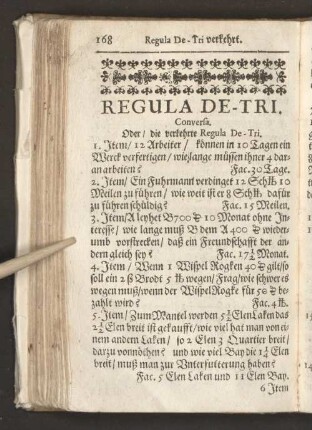 168 Regula De-Tri verkehrt.
REGULA DE-TRI,
Conversa.
Oder/ die verkehrte Regula De-Tri.
1. Item/ 12 Arbeiter/ können in 10 Tagen ein
Werck verfertigen/ wie lange müssen ihner 4 dar-
an arbeiten? Fac. 30 Tage.
2. Item/ Ein Fuhrmann verdinget 12 Schlb 10
Meilen zu führen/ wie weit ist er 8 Schlb dafür
zu führen schüldig? Fac. 15 Meilen.
3. Item/ A leyhet B 700 10 Monat ohne In-
teresse/ wie lange muß B dem A 400 wieder-
umb vorstrecken/ daß ein Freundschafft der an-
dern gleich sey? Fac. 17½ Monat.
4. Item/ Wenn 1 Wispel Rogken 40 gilt/ so
soll ein 2 ß Brodt 5 lb wegen/ Frag/ wie schwer es
wegen muß/ wenn der Wispel Rogke für 50 be-
zahlt wird? Fac. 4 lb.
5. Item/ Zum Mantel werden 5½ Elen Laken das
2½ Elen breit ist gekaufft/ wie viel hat man von ei-
nem andern Laken/ so 2 Elen 3 Quartier breit/
darzu vonnöhten? und wie viel Bay die 1¼ Elen
breit/ muß man zur Unterfutterung haben?
Fac. 5 Elen Laken und 11 Elen Bay.
6 Item